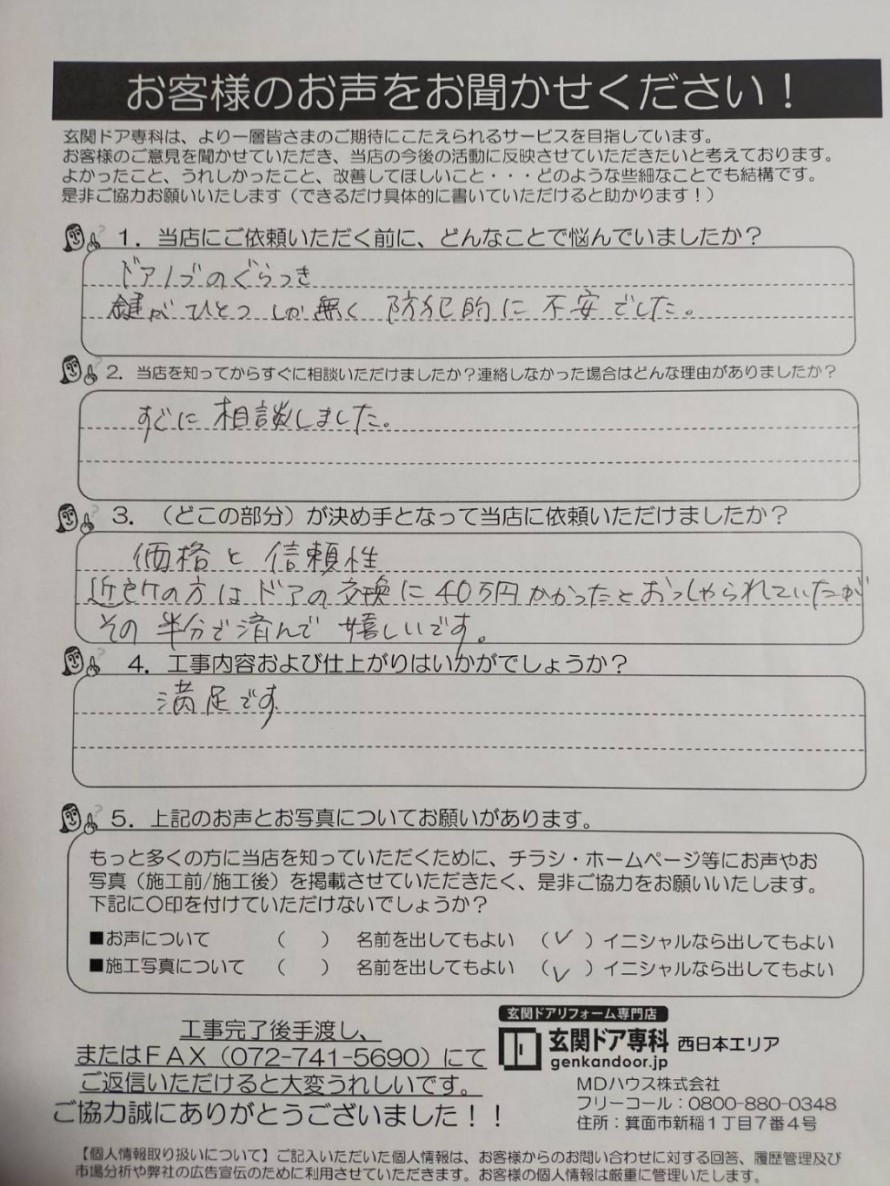 お客様のお声をお聞かせください！
玄関ドア専科は、より一層皆さまのご期待にこたえられるサービスを目指しています。
お客様のご意見を聞かせていただき、当店の今後の活動に反映させていただきたいと考えております。
よかったこと、うれしかったこと、改善してほしいこと・・・どのような些細なことでも結構です。
是非ご協力お願いいたします（できるだけ具体的に書いていただけると助かります！）
1．当店にご依頼いただく前に、どんなことで悩んでいましたか？
ドアノブのぐらつき
鍵がひとつしか無く防犯的に不安でした。
2．当店を知ってからすぐに相談いただけましたか？連絡しなかった場合はどんな理由がありましたか？
すぐに相談しました。
3．（どこの部分）が決め手となって当店に依頼いただけましたか？
価格と信頼性
近所の方はドアの交換に40万円かかったとおっしゃられていたが
その半分で済んで嬉しいです。
4．工事内容および仕上がりはいかがでしょうか？
満足です
5．上記のお声とお写真についてお願いがあります。
もっと多くの方に当店を知っていただくために、チラシ・ホームページ等にお声やお
写真（施工前/施工後）を掲載させていただきたく、是非ご協力をお願いいたします。
下記に〇印を付けていただけないでしょうか？
■お声について （ ） 名前を出してもよい （✓）イニシャルなら出してもよい
■施工写真について （ ） 名前を出してもよい （✓）イニシャルなら出してもよい
工事完了後手渡し、
またはＦＡＸ（072-741-5690）にて
ご返信いただけると大変うれしいです。
ご協力誠にありがとうございました！！
玄関ドアリフォーム専門店
玄関ドア専科 西日本エリア
genkandoor.jp
ＭＤハウス株式会社
フリーコール：0800-880-0348
住所：箕面市新稲１丁目７番４号
【個人情報取り扱いについて】ご記入いただいた個人情報は、お客様からのお問い合わせに対する回答、履歴管理及び
市場分析や弊社の広告宣伝のために利用させていただきます。お客様の個人情報は厳重に管理いたします。